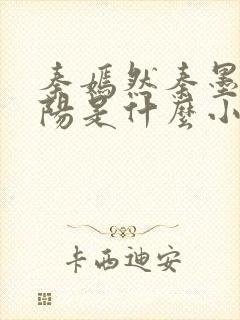 秦嫣然秦墨
陽是什麼小
卡西迪安